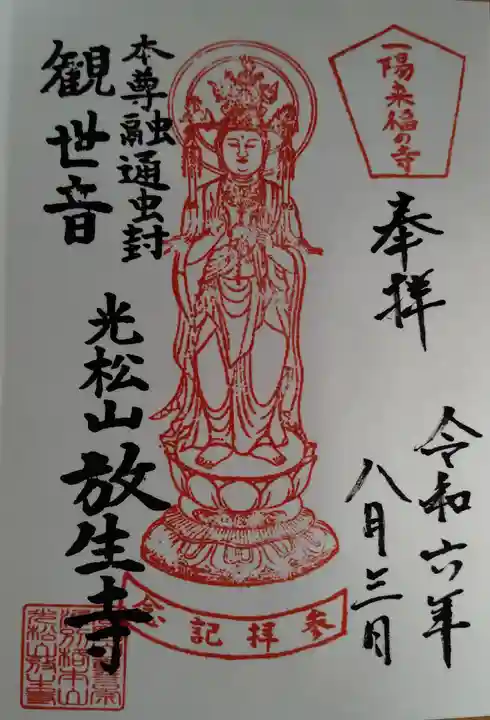 一陽来福の寺
奉拝
令和六年
八月三日
本尊融通虫封
観世音
光松山放生寺
参拝記念
光松山放生寺